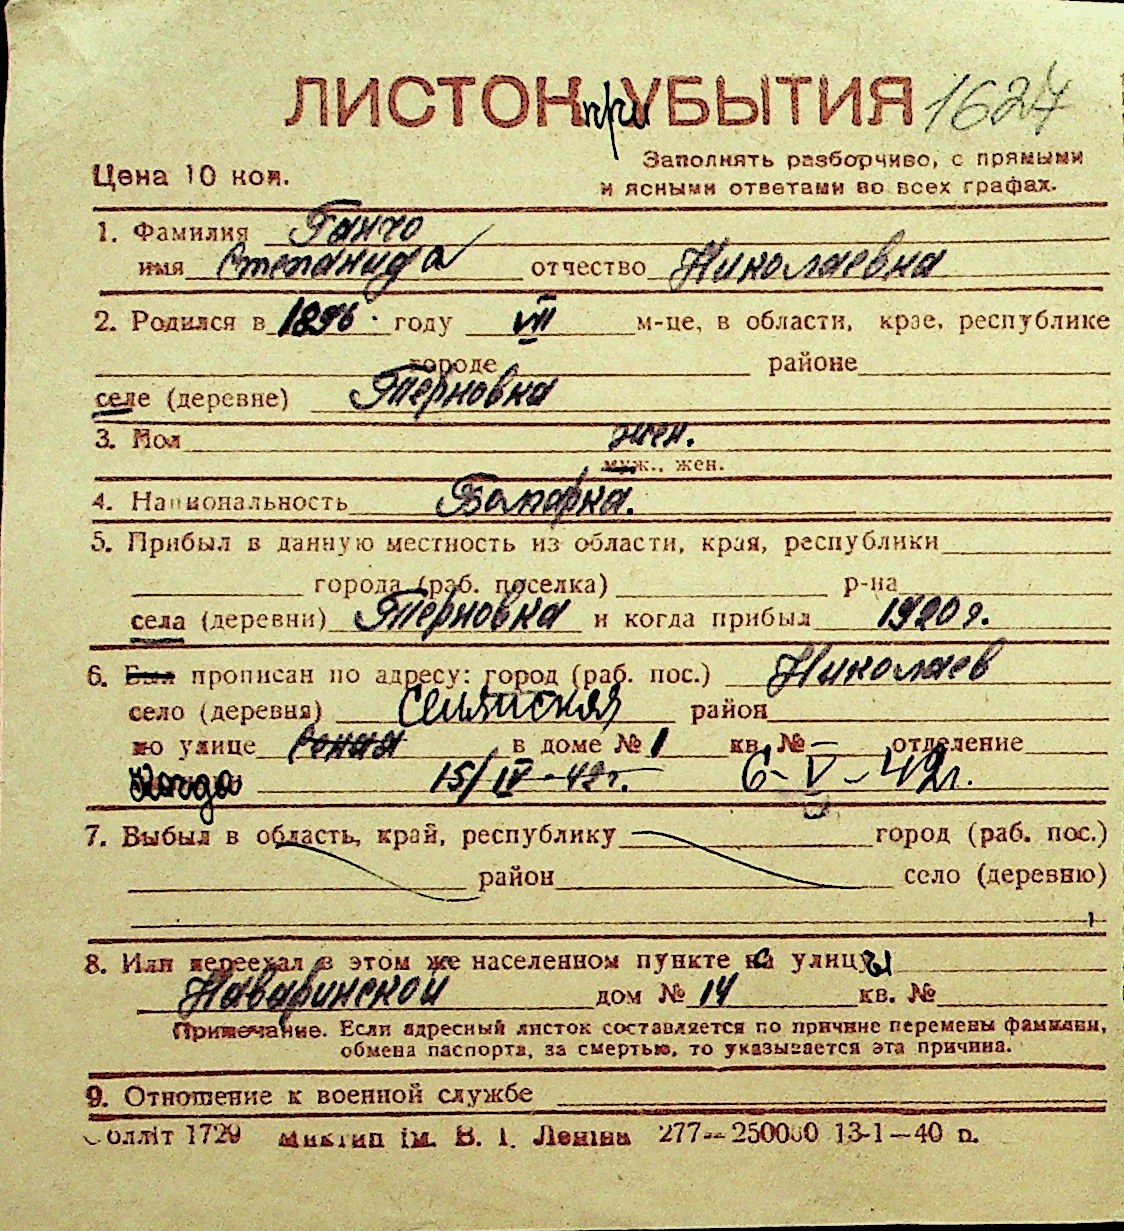 ЛИСТОК при УБЫТИЯ 1627
Цена 10 коп.
Заполнять разборчиво, с прямыми
и ясными ответами во всех графах.
1. Фамилия Ганчо
имя Степанида отчество Николаевна
2. Родился в 1896 году VII м-це, в области, крае, республике
городе районе
селе (деревне) Терновка
3. Пол жен.
муж., жен.
4. Национальность Болгарка.
5. Прибыл в данную местность из области, края, республики
города (раб. поселка) р-на
села (деревни) Терновка и когда прибыл 1920 г.
6. Был прописан по адресу: город (раб. пос.) Николаев
село (деревня) район
по улице в доме № 1 кв. № — отделение
Когда 15/IV-42г. 6-V-42г.
7. Выбыл в область, край, республику город (раб. пос.)
район село (деревню)
8. Или переехал в этом же населенном пункте с улицы
Наваринской дом № 14 кв. №
Примечание. Если адресный листок составляется по причине перемены фамилии,
обмена паспорта, за смертью, то указывается эта причина.
9. Отношение к военной службе
Облліт 1729 ім. В. І. Леніна 277—250000 13-1—40 п.